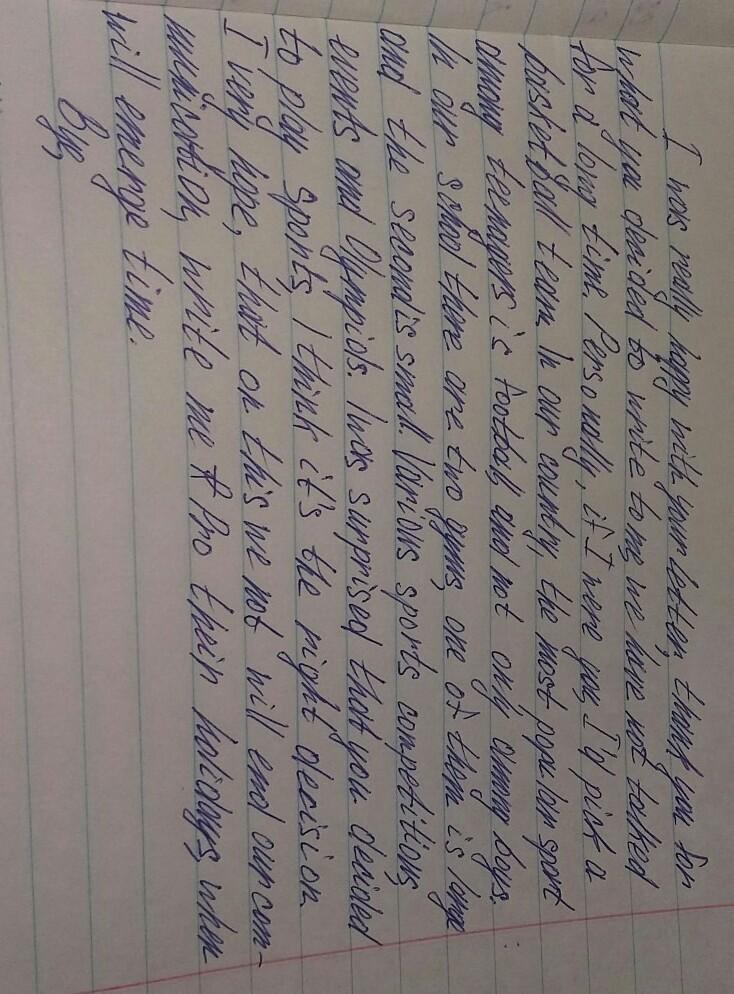 I was really happy with your letter, thank you for
what you decided to write to me, we have not talked
for a long time. Personally, if I were you, I'd pick a
basketball team. In our country, the most popular sport
among teenagers is football, and not only among boys.
In our school there are two gyms, one of them is large
and the second is small. Various sports competitions,
events and Olympiads. I was surprised that you decided
to play sports, I think it's the right decision.
I very hope, that on this we not will end our com-
munication, write me pro their holidays, when
will emerge time.
Bye,